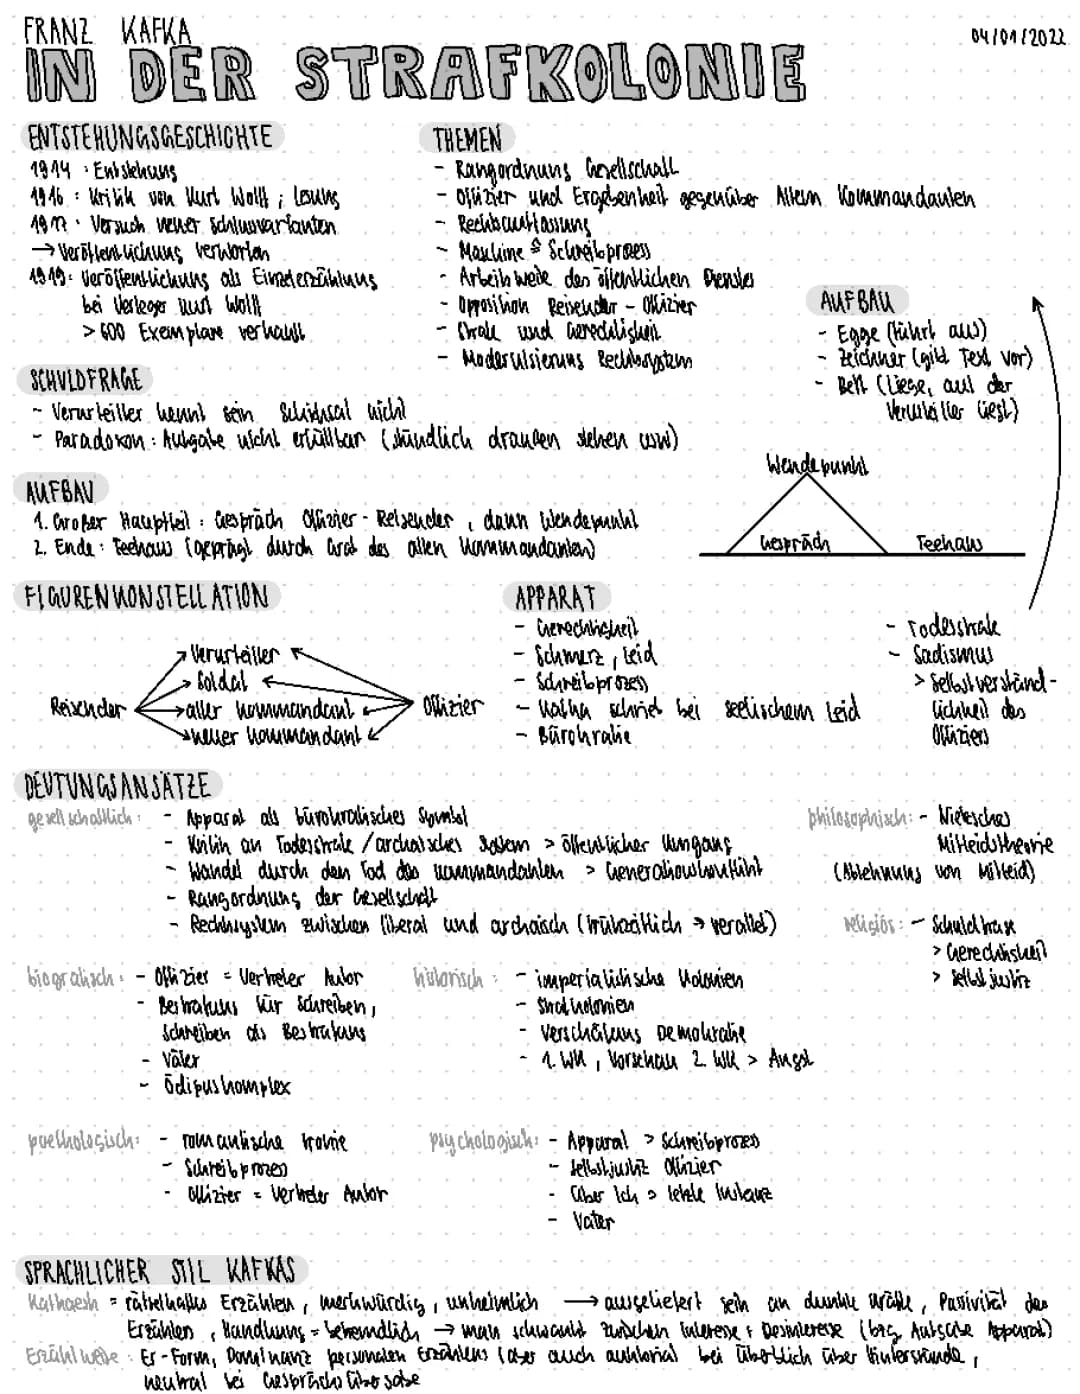 FRANZ KAFKA
04/01/2022
IN DER STRAFKOLONIE
ENTSTEHUNGSGESCHICHTE
1914 : Entstehung
1916 : Kritik von Kurt Wolff ; Lesung
1917 : Versuch neuer Schlussvarianten
→ Veröffentlichung verworfen
1919: Veröffentlichung als Einzelerzählung
bei Verleger Kurt Wolff
> 600 Exemplare verkauft
THEMEN
- Rangordnung Gesellschaft
- Offizier und Ergebenheit gegenüber Altem Kommandanten
- Rechtsauffassung
- Maschine & Schreibprozess
- Arbeitsweise des öffentlichen Dienstes
- Opposition Reisender - Offizier
- Strafe und Gerechtigkeit
- Modernisierung Rechtssystem
AUFBAU
- Egge (führt aus)
- Zeichner (gibt Text vor)
- Bett (Liege, auf der
Verurteilter liegt)
SCHULDFRAGE
- Verurteilter kennt sein Schicksal nicht
- Paradoxon : Aufgabe nicht erfüllbar (stündlich draußen stehen usw)
AUFBAU
1. Großer Hauptteil : Gespräch Offizier - Reisender , dann Wendepunkt
2. Ende : Teehaus (geprägt durch Grab des alten Kommandanten)
Wendepunkt
Gespräch
Teehaus
FIGURENKONSTELLATION
Reisender
Verurteilter
Soldat
alter Kommandant
neuer Kommandant
Offizier
APPARAT
- Gerechtigkeit
- Schmerz , Leid
- Schreibprozess
- Kafka schrieb bei seelischem Leid
- Bürokratie
- Todesstrafe
- Sadismus
> Selbstverständ-
lichkeit des
Offiziers
DEUTUNGSANSÄTZE
gesellschaftlich :
- Apparat als bürokratisches Symbol
- Kritik an Todesstrafe / archaisches System > öffentlicher Umgang
- Wandel durch den Tod des Kommandanten > Generationskonflikt
- Rangordnung der Gesellschaft
- Rechtssystem zwischen liberal und archaisch (frühzeitlich → veraltet)
philosophisch : - Nietzsches
Mitleidstheorie
(Ablehnung von Mitleid)
religiös : - Schuldfrage
> Gerechtigkeit
> Selbstjustiz
biografisch : - Offizier = Vertreter Autor
- Bestrafung für Schreiben,
Schreiben als Bestrafung
- Väter
- Ödipuskomplex
historisch : - imperialistische Kolonien
- Strafkolonien
- Verschärfung Demokratie
- 1. WK , Vorschau 2. WK > Angst
poethologisch: - romantische Ironie
- Schreibprozess
- Offizier = Vertreter Autor
psychologisch: - Apparat > Schreibprozess
- Selbstjustiz Offizier
- Über Ich > letzte Instanz
- Vater
SPRACHLICHER STIL KAFKAS
Kafkaesk = rätselhaftes Erzählen , merkwürdig , unheimlich → ausgeliefert sein an dunkle Kräfte , Passivität des
Erzählen , Handlung = befremdlich → man schwankt zwischen Interesse & Desinteresse (bzg Aufgabe Apparat)
Erzählweise : Er-Form, Dominanz personalen Erzählens (aber auch auktorial bei Überblick über Hintergründe ,
neutral bei Gesprächs